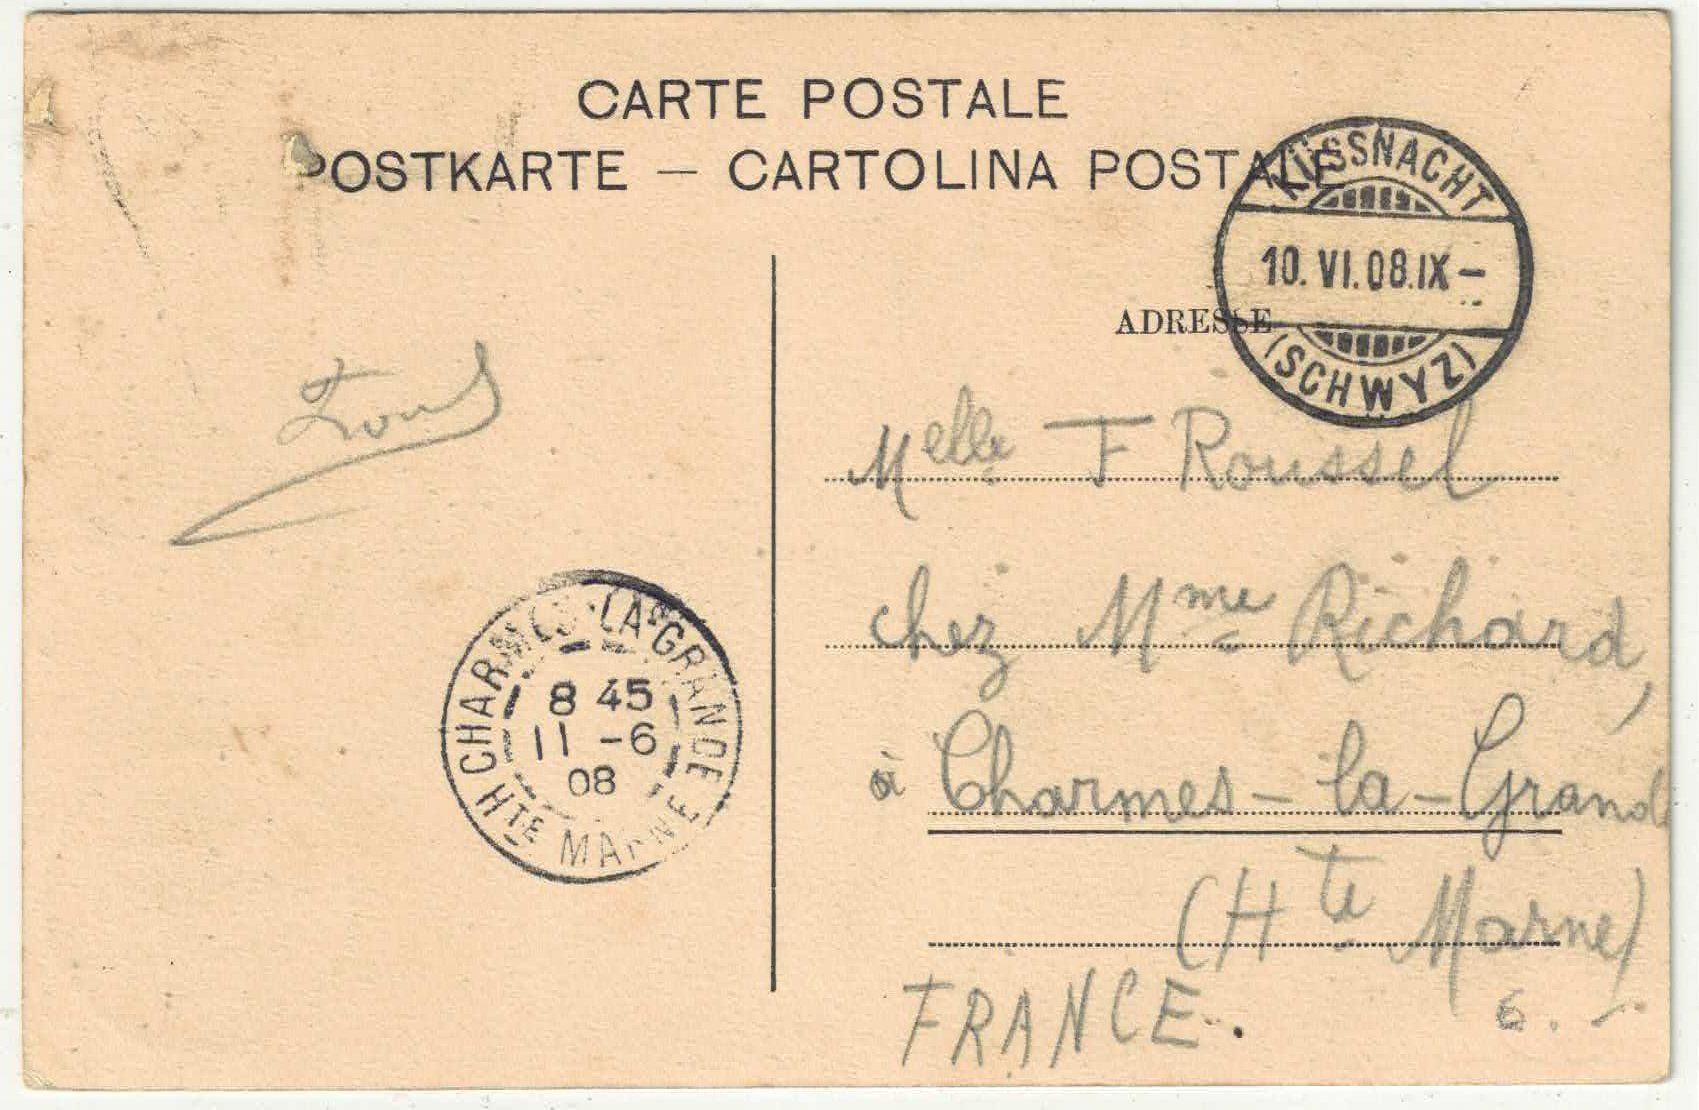 CARTE POSTALE
POSTKARTE — CARTOLINA POSTALE
KÜSSNACHT
10. VI. 08. IX –
(SCHWYZ)
ADRESSE
Melle F Roussel
chez Mme Richard,
à Charmes-la-Grande
(Hte Marne)
FRANCE.
6. –
CHARMES-LA-GRANDE
8 45
11 -6
08
HTE MARNE